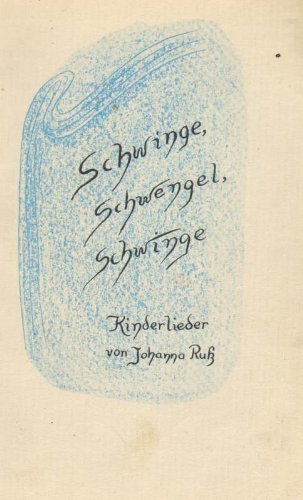 Schwinge,
Schwengel,
Schwinge
Kinderlieder
von Johanna Ruß